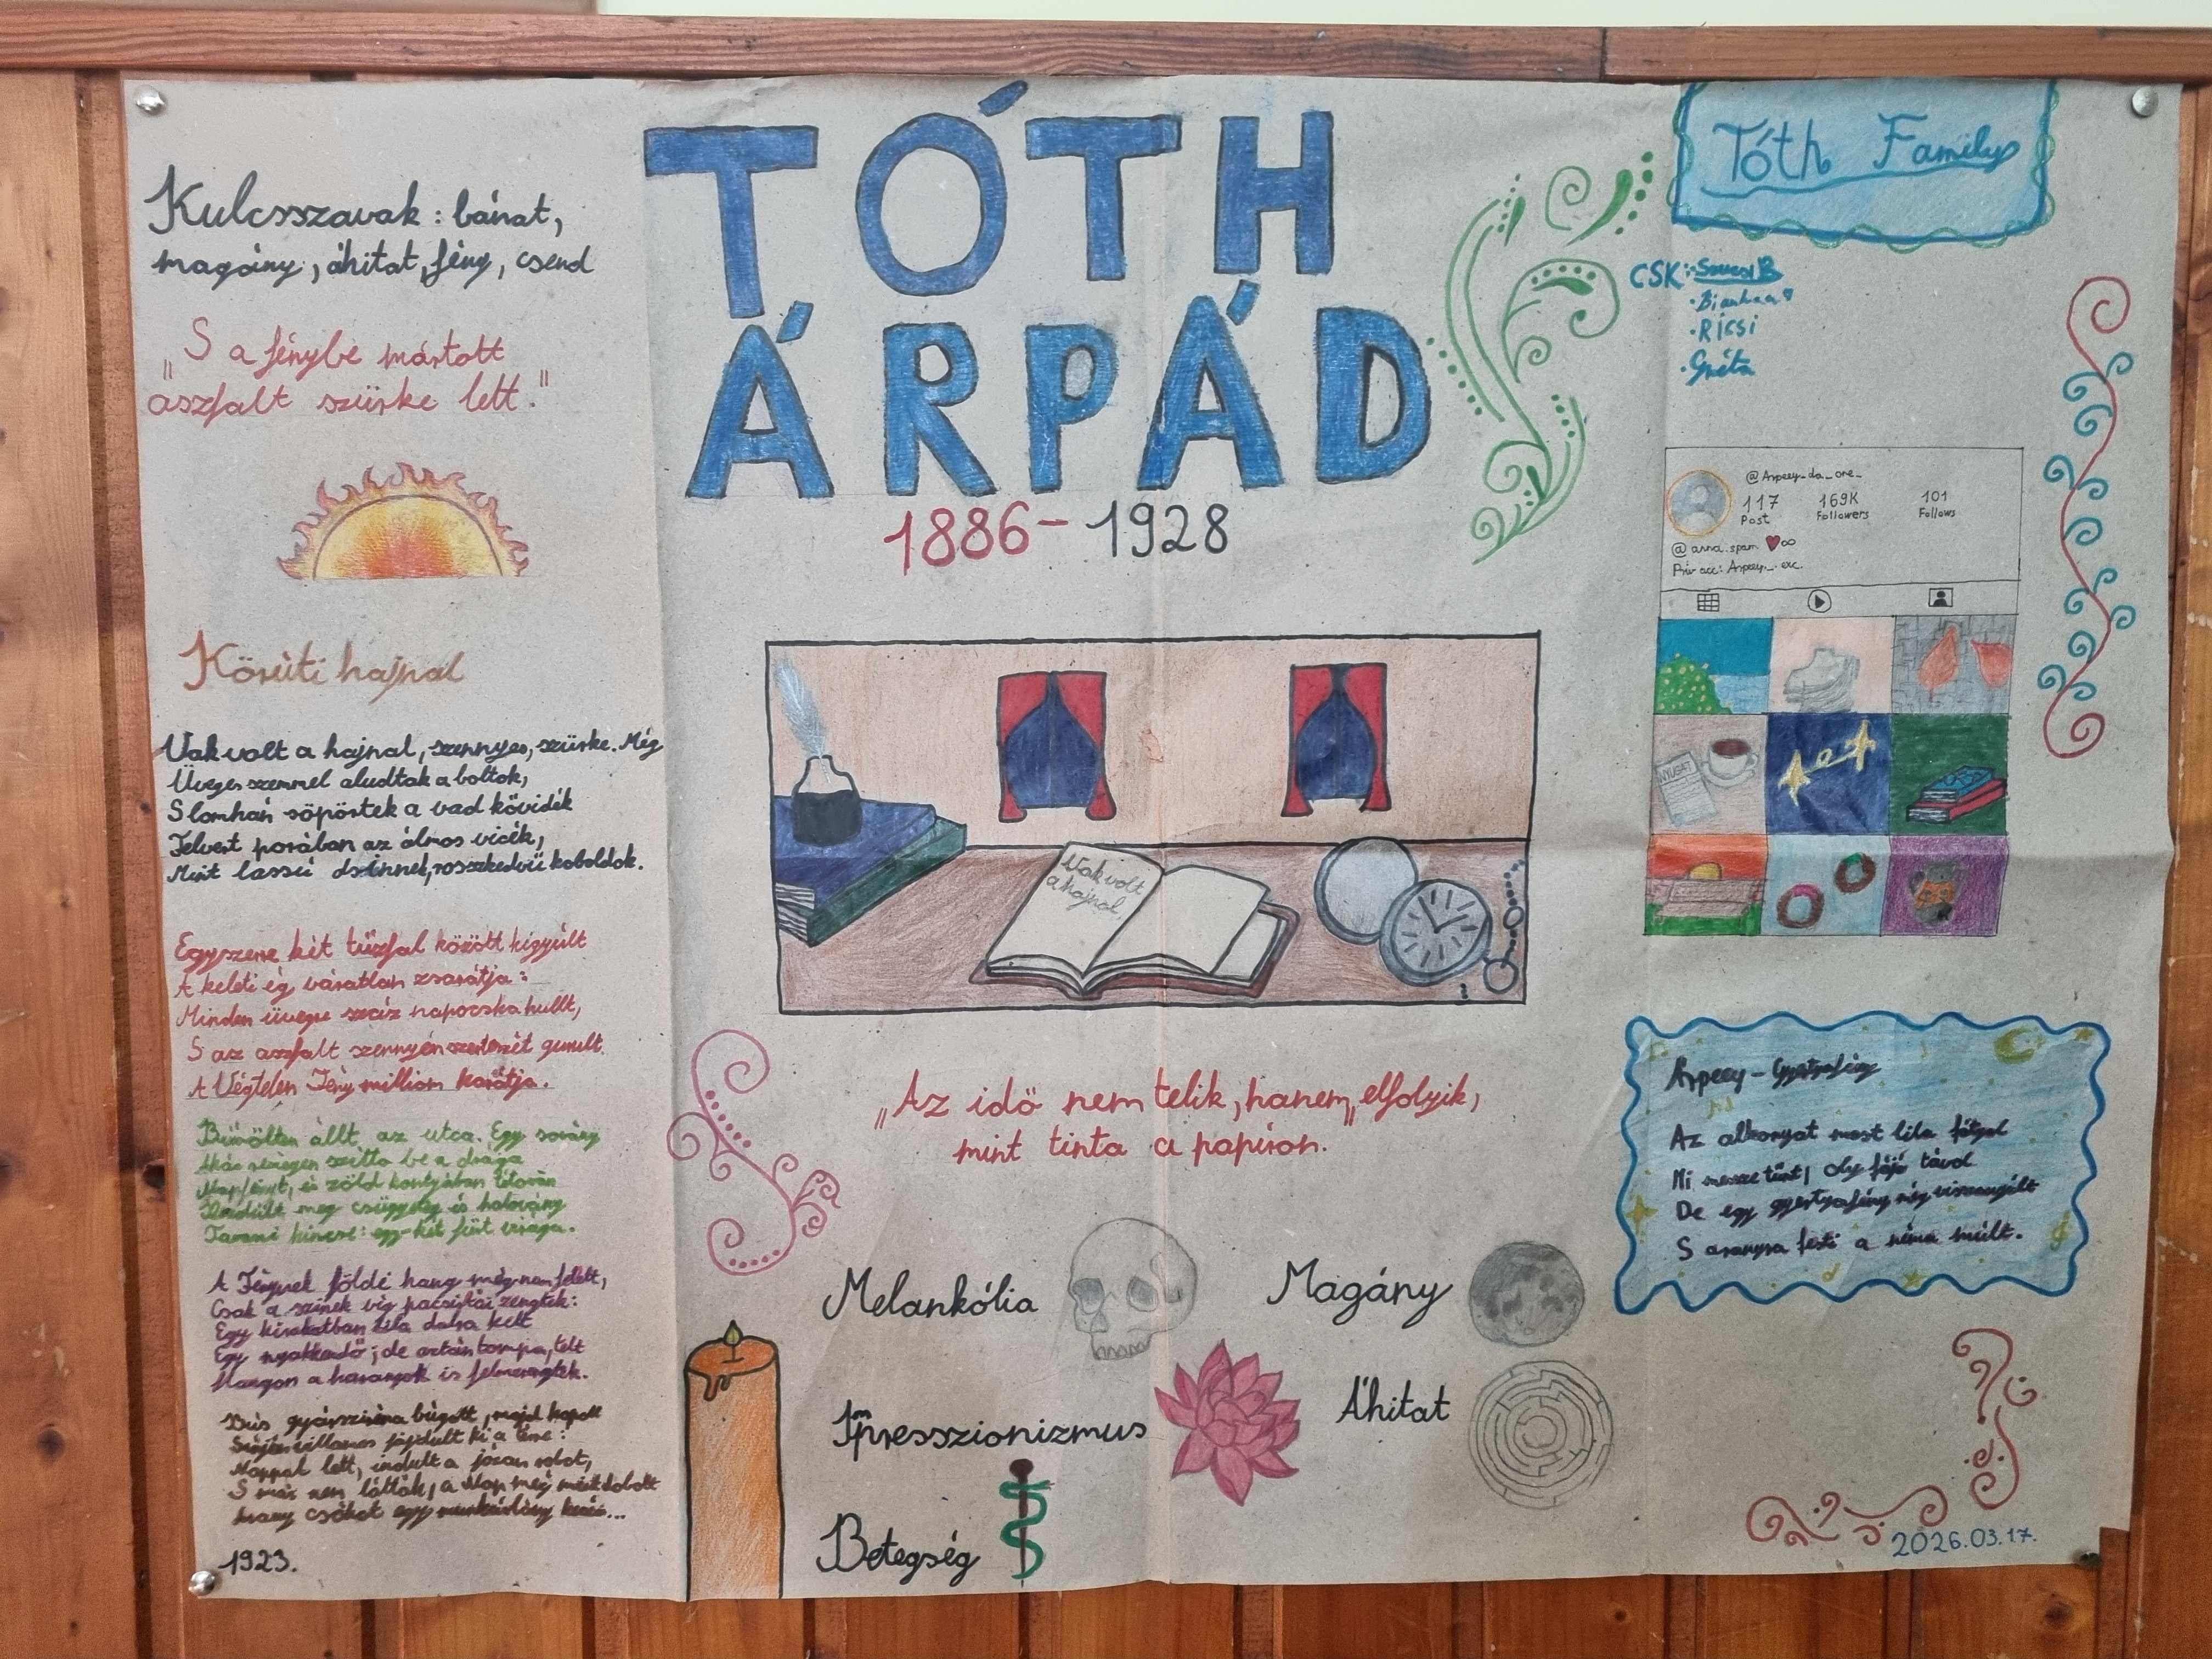 Kulcsszavak: bánat,
magány, áhitat, fény, csend
"S a fénybe mártott
aszfalt szürke lett."
Körúti hajnal
Vak volt a hajnal, szennyes, szürke. Még
Üveges szemmel aludtak a boltok,
S lomhán söpörtek a vad kövidék
Felvert porában az álmos vicék,
Mint lassú dsinnek, rosszkedvű koboldok.
Egyszerre két tűzfal között kigyúlt
A keleti ég váratlan zsarátja:
Minden üvegre száz napocska hullt,
S az aszfalt szennyén szerteszét gurult
A Végtelen Fény milliom karátja.
Bűvölten állt az utca. Egy sovány
Akác részegen szítta be a drága
Napfényt, és zöld kontyában tétován
Rezdült meg csüggeteg és halovány
Tavaszi kincse: egy-két fürt virága.
A Fénynek földi hang még nem felelt,
Csak a színek víg pacsirtái zengtek:
Egy kirakatban lila dalra kelt
Egy nyakkendő; de aztán tompa, telt
Hangon a harangok is felmerengtek.
Bús gyársziréna búgott, majd kopott
Sínjén villamos jajdult ki a térre:
Nappal lett, indult a józan robot,
S már nem látták, a Nap még mint dobott
Arany csókot egy munkáslány kezére...
1923.
TÓTH
ÁRPÁD
1886-1928
Vak volt
a hajnal,
"Az idő nem telik, hanem "elfolyik,
mint tinta a papíron.
Melankólia
Magány
Impresszionizmus
Áhitat
Betegség
Tóth Family
CSK:
• Ricsi
• Gréta
@Arpeey_da_one_
117 169K 101
Post Followers Follows
@anna.spam ♥∞
Priv acc: Arpeey_.exc.
NYUGAT
Arpeey - Gyertyafény
Az alkonyat most lila fátyol
Mi messze tűnt, oly fájó távol
De egy gyertyafény még visszanyúlt
S aranyra festi a néma múlt.
2026.03.17.